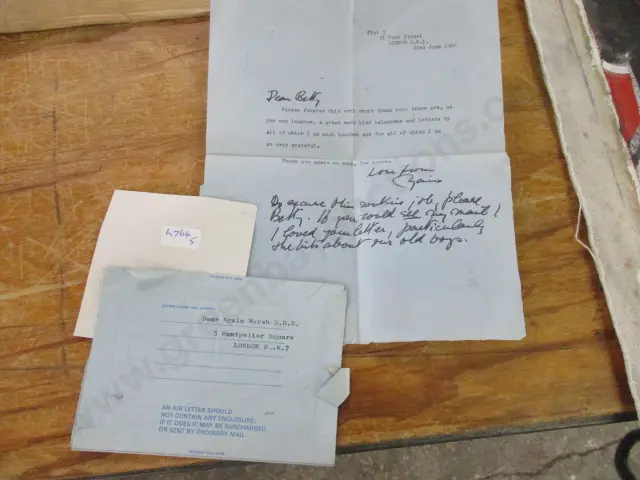 Flat 5
London S.W.1.
22nd June 1966
Dear Betty
Please forgive this very short thank you: there are, as
you may imagine, a great many kind telegrams and letters by
all of which I am most touched and for all of which I am
so very grateful.
Thank you again so much, for yours.
Love from
Ngaio
Do excuse this job, please
Betty. If you could see my mail!
I loved your letter, particularly
the bits about our old boys.
h764
5
Dame Ngaio Marsh D.B.E.
5 Montpelier Square
LONDON S.W.7
AN AIR LETTER SHOULD
NOT CONTAIN ANY ENCLOSURE;
IF IT DOES IT MAY BE SURCHARGED
OR SENT BY ORDINARY MAIL